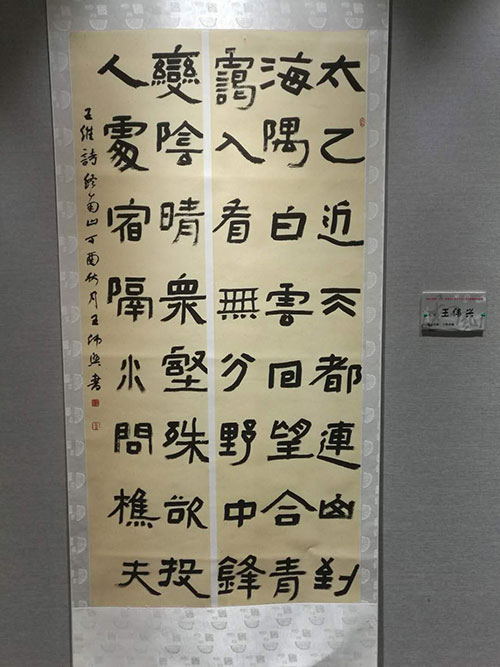 太乙近天都連山到
海隅白雲回望合青
靄入看無分野中鋒
變陰晴衆壑殊欲投
人處宿隔水問樵夫
王維詩終南山丁酉秋月王偉興書
王伟兴